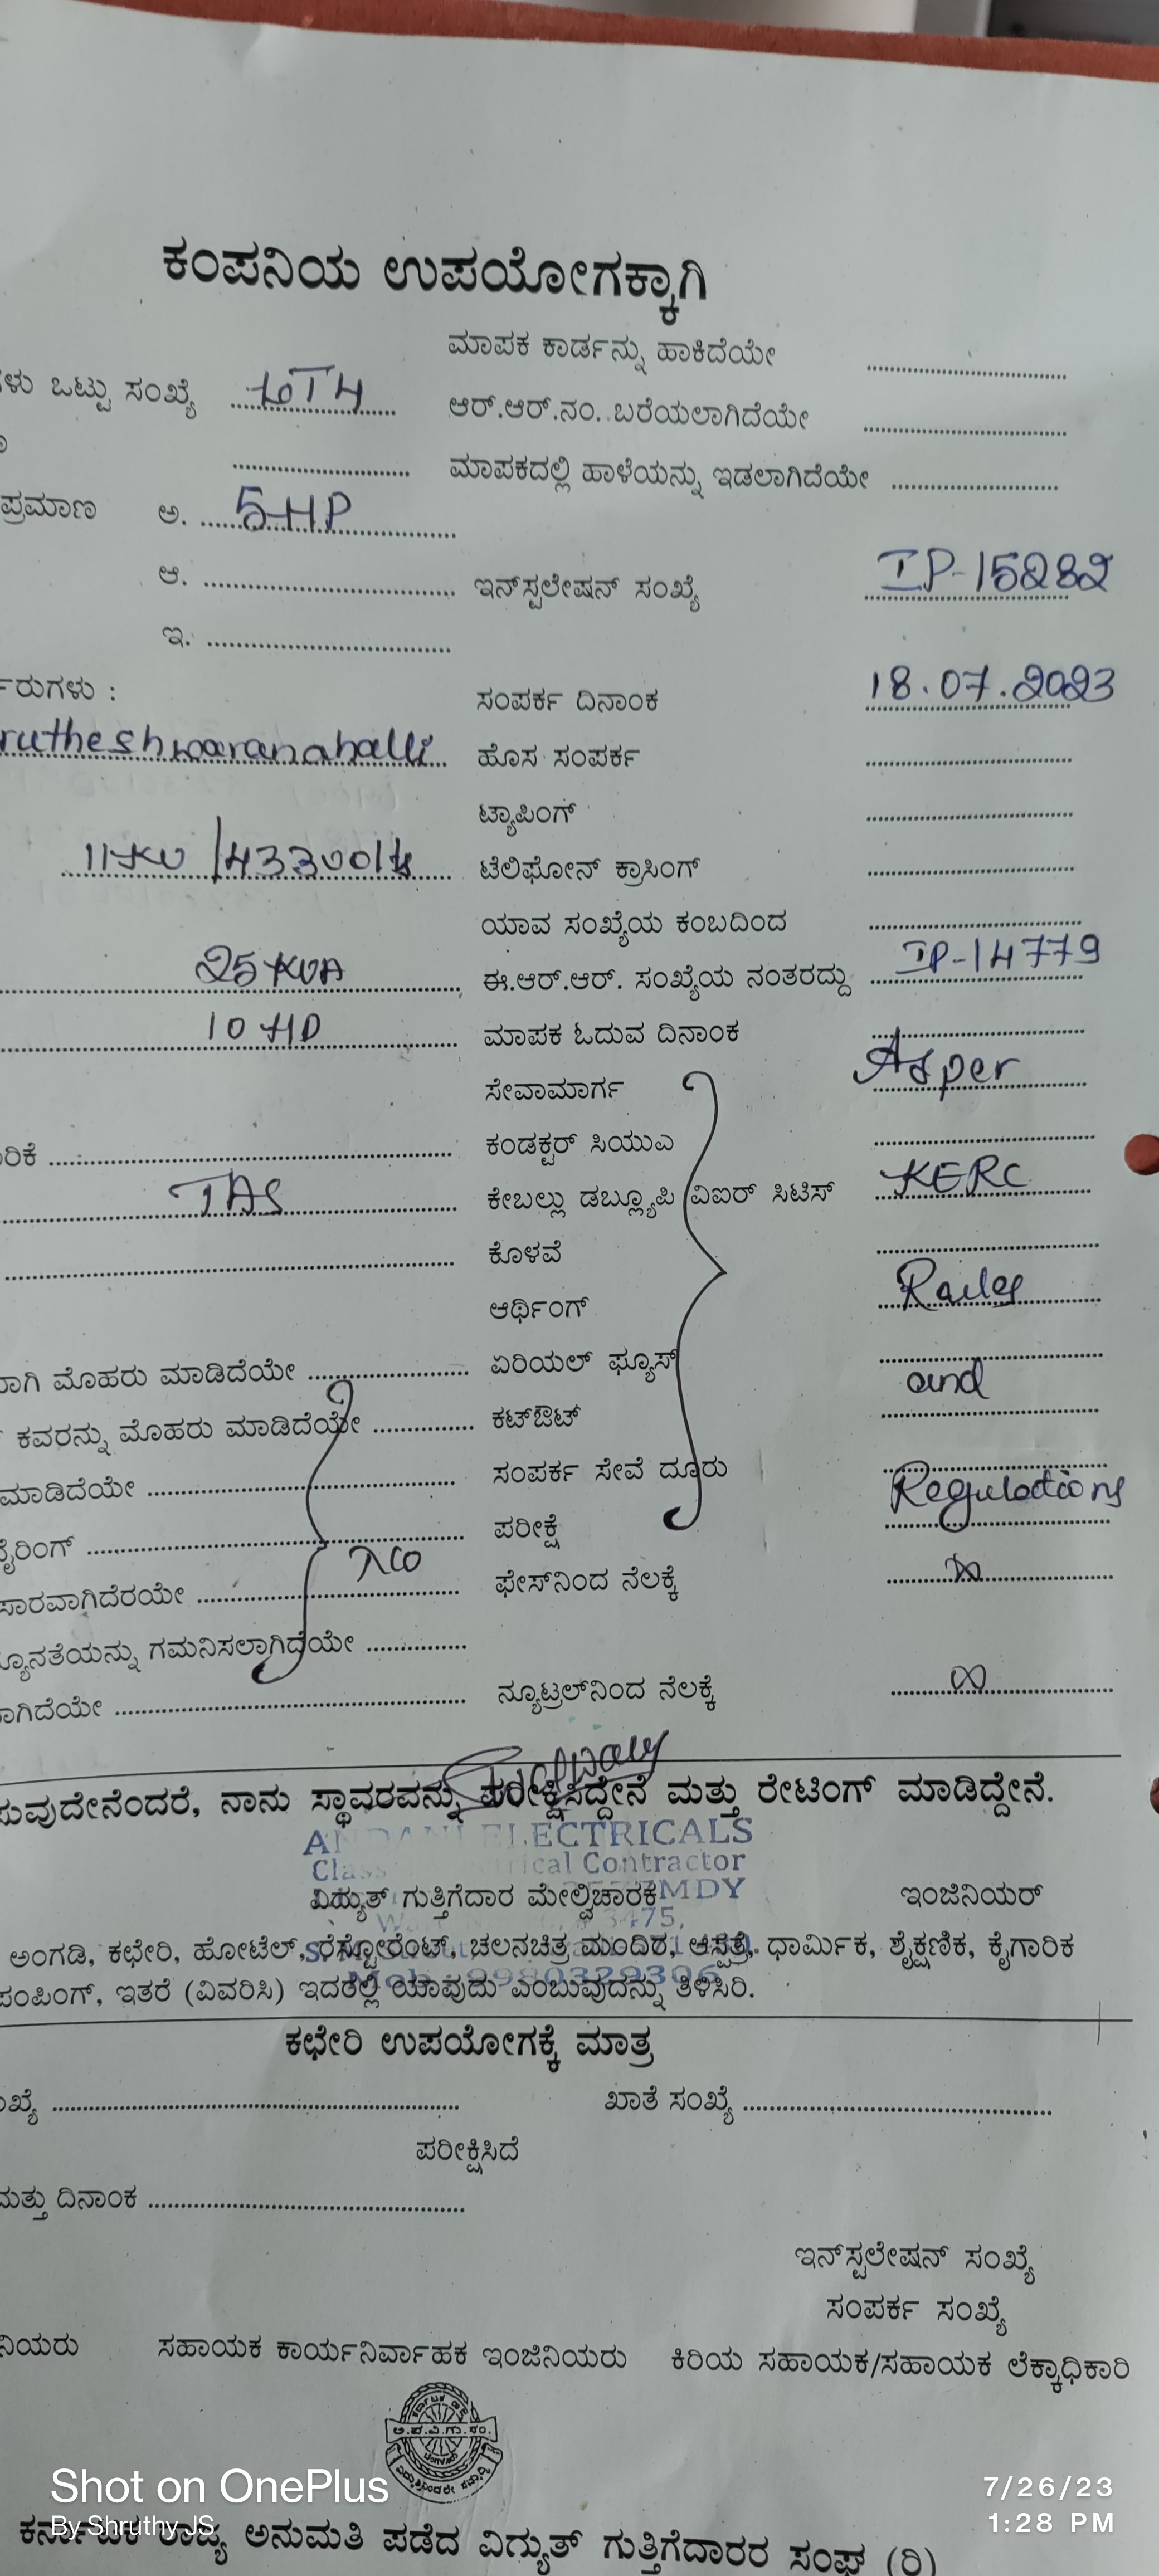 ಕಂಪನಿಯ ಉಪಯೋಗಕ್ಕಾಗಿ
ಮಾಪಕ ಕಾರ್ಡನ್ನು ಹಾಕಿದೆಯೇ
ಗಳು ಒಟ್ಟು ಸಂಖ್ಯೆ
ಆರ್.ಆರ್.ನಂ. ಬರೆಯಲಾಗಿದೆಯೇ
ಮಾಪಕದಲ್ಲಿ ಹಾಳೆಯನ್ನು ಇಡಲಾಗಿದೆಯೇ
ಪ್ರಮಾಣ ಅ. 5 HP
ಆ. ಇನ್‌ಸ್ಟಲೇಷನ್ ಸಂಖ್ಯೆ IP-15282
ಇ.
ರುಗಳು : ಸಂಪರ್ಕ ದಿನಾಂಕ 18.07.2023
rutheshwaranahalli ಹೊಸ ಸಂಪರ್ಕ
ಟ್ಯಾಪಿಂಗ್
11KV/433Volts ಟೆಲಿಫೋನ್ ಕ್ರಾಸಿಂಗ್
ಯಾವ ಸಂಖ್ಯೆಯ ಕಂಬದಿಂದ
25 KVA ಈ.ಆರ್.ಆರ್. ಸಂಖ್ಯೆಯ ನಂತರದ್ದು IP-14779
10 HP ಮಾಪಕ ಓದುವ ದಿನಾಂಕ
ಸೇವಾಮಾರ್ಗ Asper
ರಿಕೆ ಕಂಡಕ್ಟರ್ ಸಿಯುಎ
TAS ಕೇಬಲ್ಲು ಡಬ್ಲ್ಯೂಪಿ ವಿಐರ್ ಸಿಟಿಸ್ KERC
ಕೊಳವೆ
ಆರ್ಥಿಂಗ್ Rules
ವಾಗಿ ಮೊಹರು ಮಾಡಿದೆಯೇ ಏರಿಯಲ್ ಫ್ಯೂಸ್ and
ಕವರನ್ನು ಮೊಹರು ಮಾಡಿದೆಯೇ ಕಟ್‌ಔಟ್
ಮಾಡಿದೆಯೇ ಸಂಪರ್ಕ ಸೇವೆ ದೂರು Regulations
ವೈರಿಂಗ್ ಪರೀಕ್ಷೆ
ಸಾರವಾಗಿದೆರಯೇ ಫೇಸ್‌ನಿಂದ ನೆಲಕ್ಕೆ
ನ್ಯೂನತೆಯನ್ನು ಗಮನಿಸಲಾಗಿದ್ರೆಯೇ
ಲಾಗಿದೆಯೇ ನ್ಯೂಟ್ರಲ್‌ನಿಂದ ನೆಲಕ್ಕೆ ∞
ಸುವುದೇನೆಂದರೆ, ನಾನು ಸ್ಥಾವರವನ್ನು ಪರೀಕ್ಷಿಸಿದ್ದೇನೆ ಮತ್ತು ರೇಟಿಂಗ್ ಮಾಡಿದ್ದೇನೆ.
ELECTRICALS
Contractor
ವಿದ್ಯುತ್ ಗುತ್ತಿಗೆದಾರ ಮೇಲ್ವಿಚಾರಕ MDY ಇಂಜಿನಿಯರ್
3475,
ಅಂಗಡಿ, ಕಛೇರಿ, ಹೋಟೆಲ್, ರೆಸ್ಟೋರೆಂಟ್, ಚಲನಚಿತ್ರ ಮಂದಿರ, ಆಸ್ಪತ್ರೆ, ಧಾರ್ಮಿಕ, ಶೈಕ್ಷಣಿಕ, ಕೈಗಾರಿಕ
ಪಂಪಿಂಗ್, ಇತರೆ (ವಿವರಿಸಿ) ಇದರಲ್ಲಿ ಯಾವುದು ಎಂಬುವುದನ್ನು ತಿಳಿಸಿರಿ.
ಕಛೇರಿ ಉಪಯೋಗಕ್ಕೆ ಮಾತ್ರ
ಂಖ್ಯೆ ಖಾತೆ ಸಂಖ್ಯೆ
ಪರೀಕ್ಷಿಸಿದೆ
ಮತ್ತು ದಿನಾಂಕ
ಇನ್‌ಸ್ಟಲೇಷನ್ ಸಂಖ್ಯೆ
ಸಂಪರ್ಕ ಸಂಖ್ಯೆ
ನಿಯರು ಸಹಾಯಕ ಕಾರ್ಯನಿರ್ವಾಹಕ ಇಂಜಿನಿಯರು ಕಿರಿಯ ಸಹಾಯಕ/ಸಹಾಯಕ ಲೆಕ್ಕಾಧಿಕಾರಿ
Shot on OnePlus
By Shruthy JS
7/26/23
1:28 PM
ಕರ್ನಾಟಕ ರಾಜ್ಯ ಅನುಮತಿ ಪಡೆದ ವಿದ್ಯುತ್ ಗುತ್ತಿಗೆದಾರರ ಸಂಘ (ರಿ)